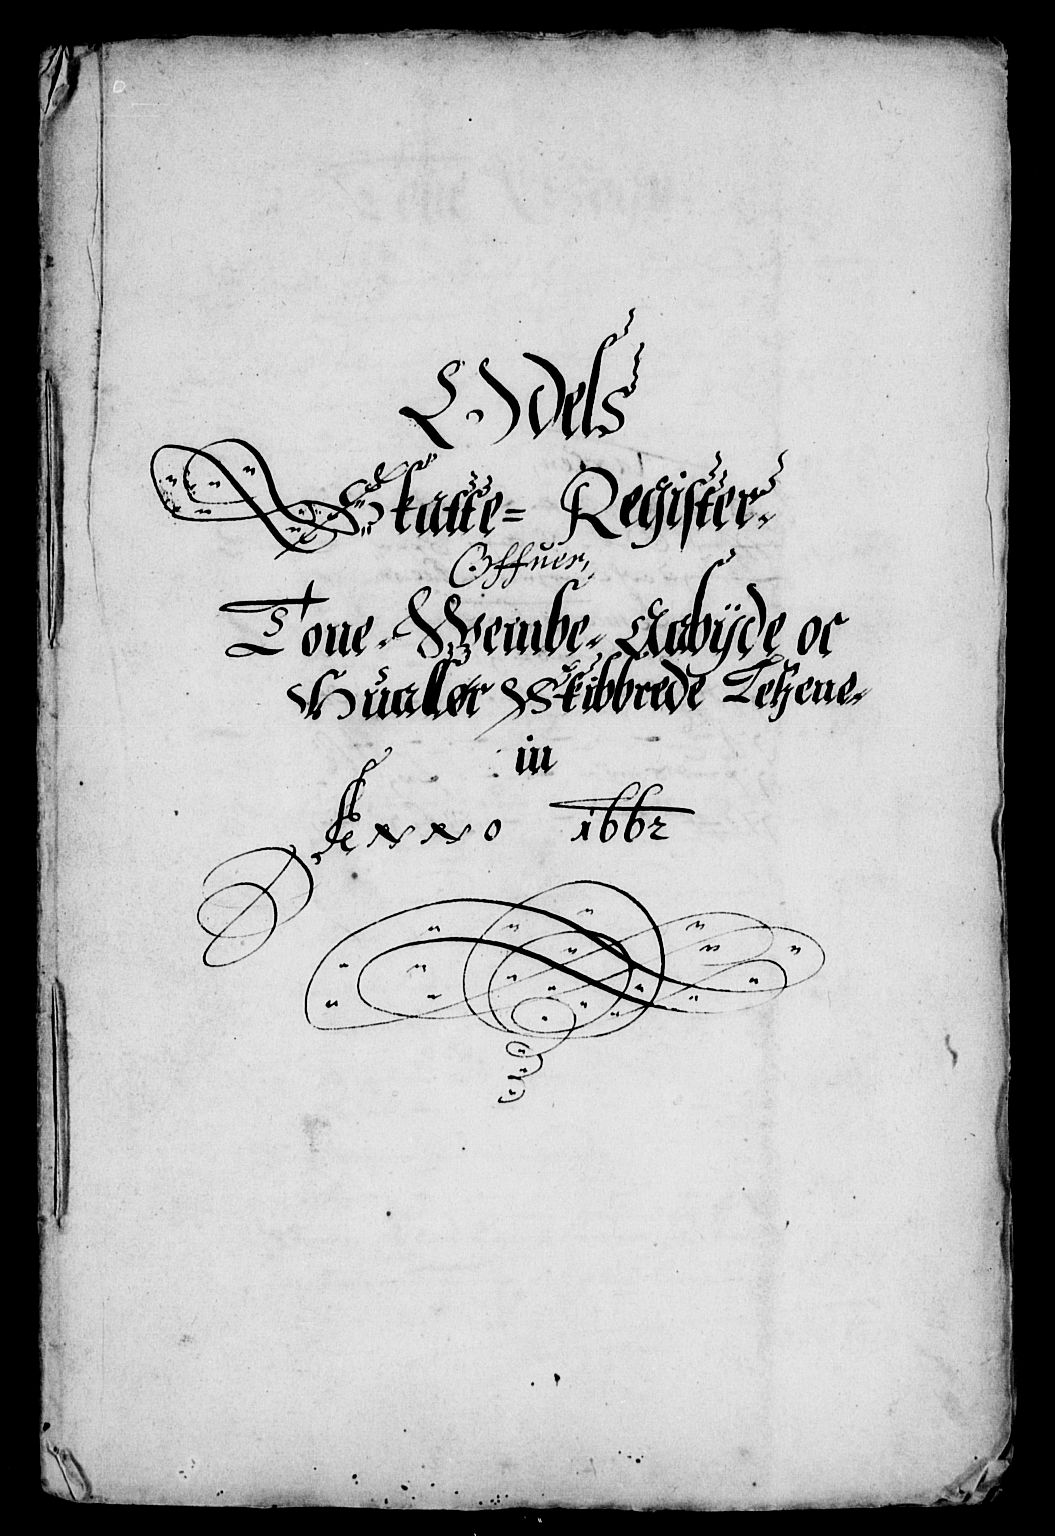 Odels
Skatte= Register
Offuer
Tone. Wembe. Aabÿde oc
Hualør Skibbrede Lehene
in
Anno 1662